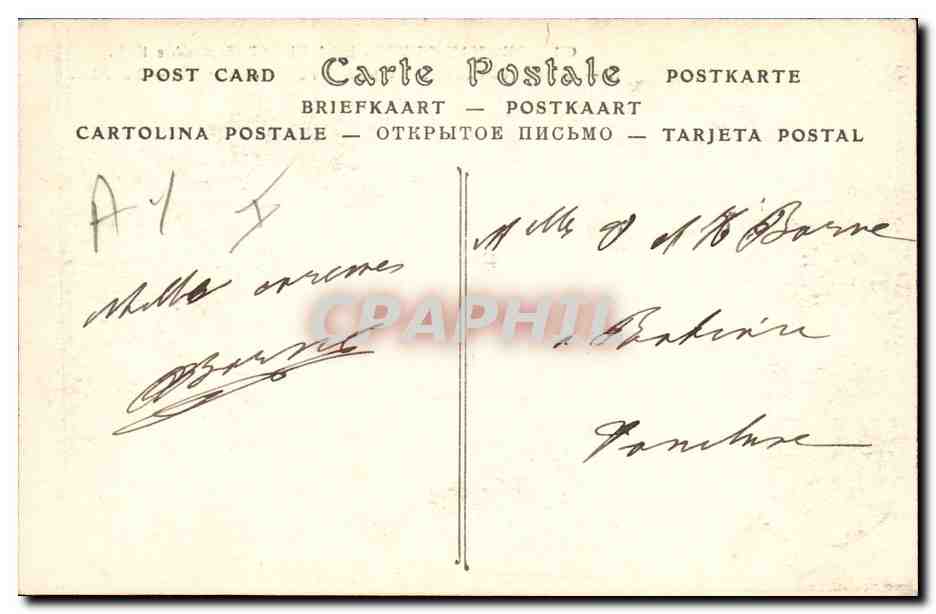 POST CARD Carte Postale POSTKARTE
BRIEFKAART — POSTKAART
CARTOLINA POSTALE — ОТКРЫТОЕ ПИСЬМО — TARJETA POSTAL
A Y
Mille
Borne
CPAPHIL
Mlle Borne
à
Vaucluse